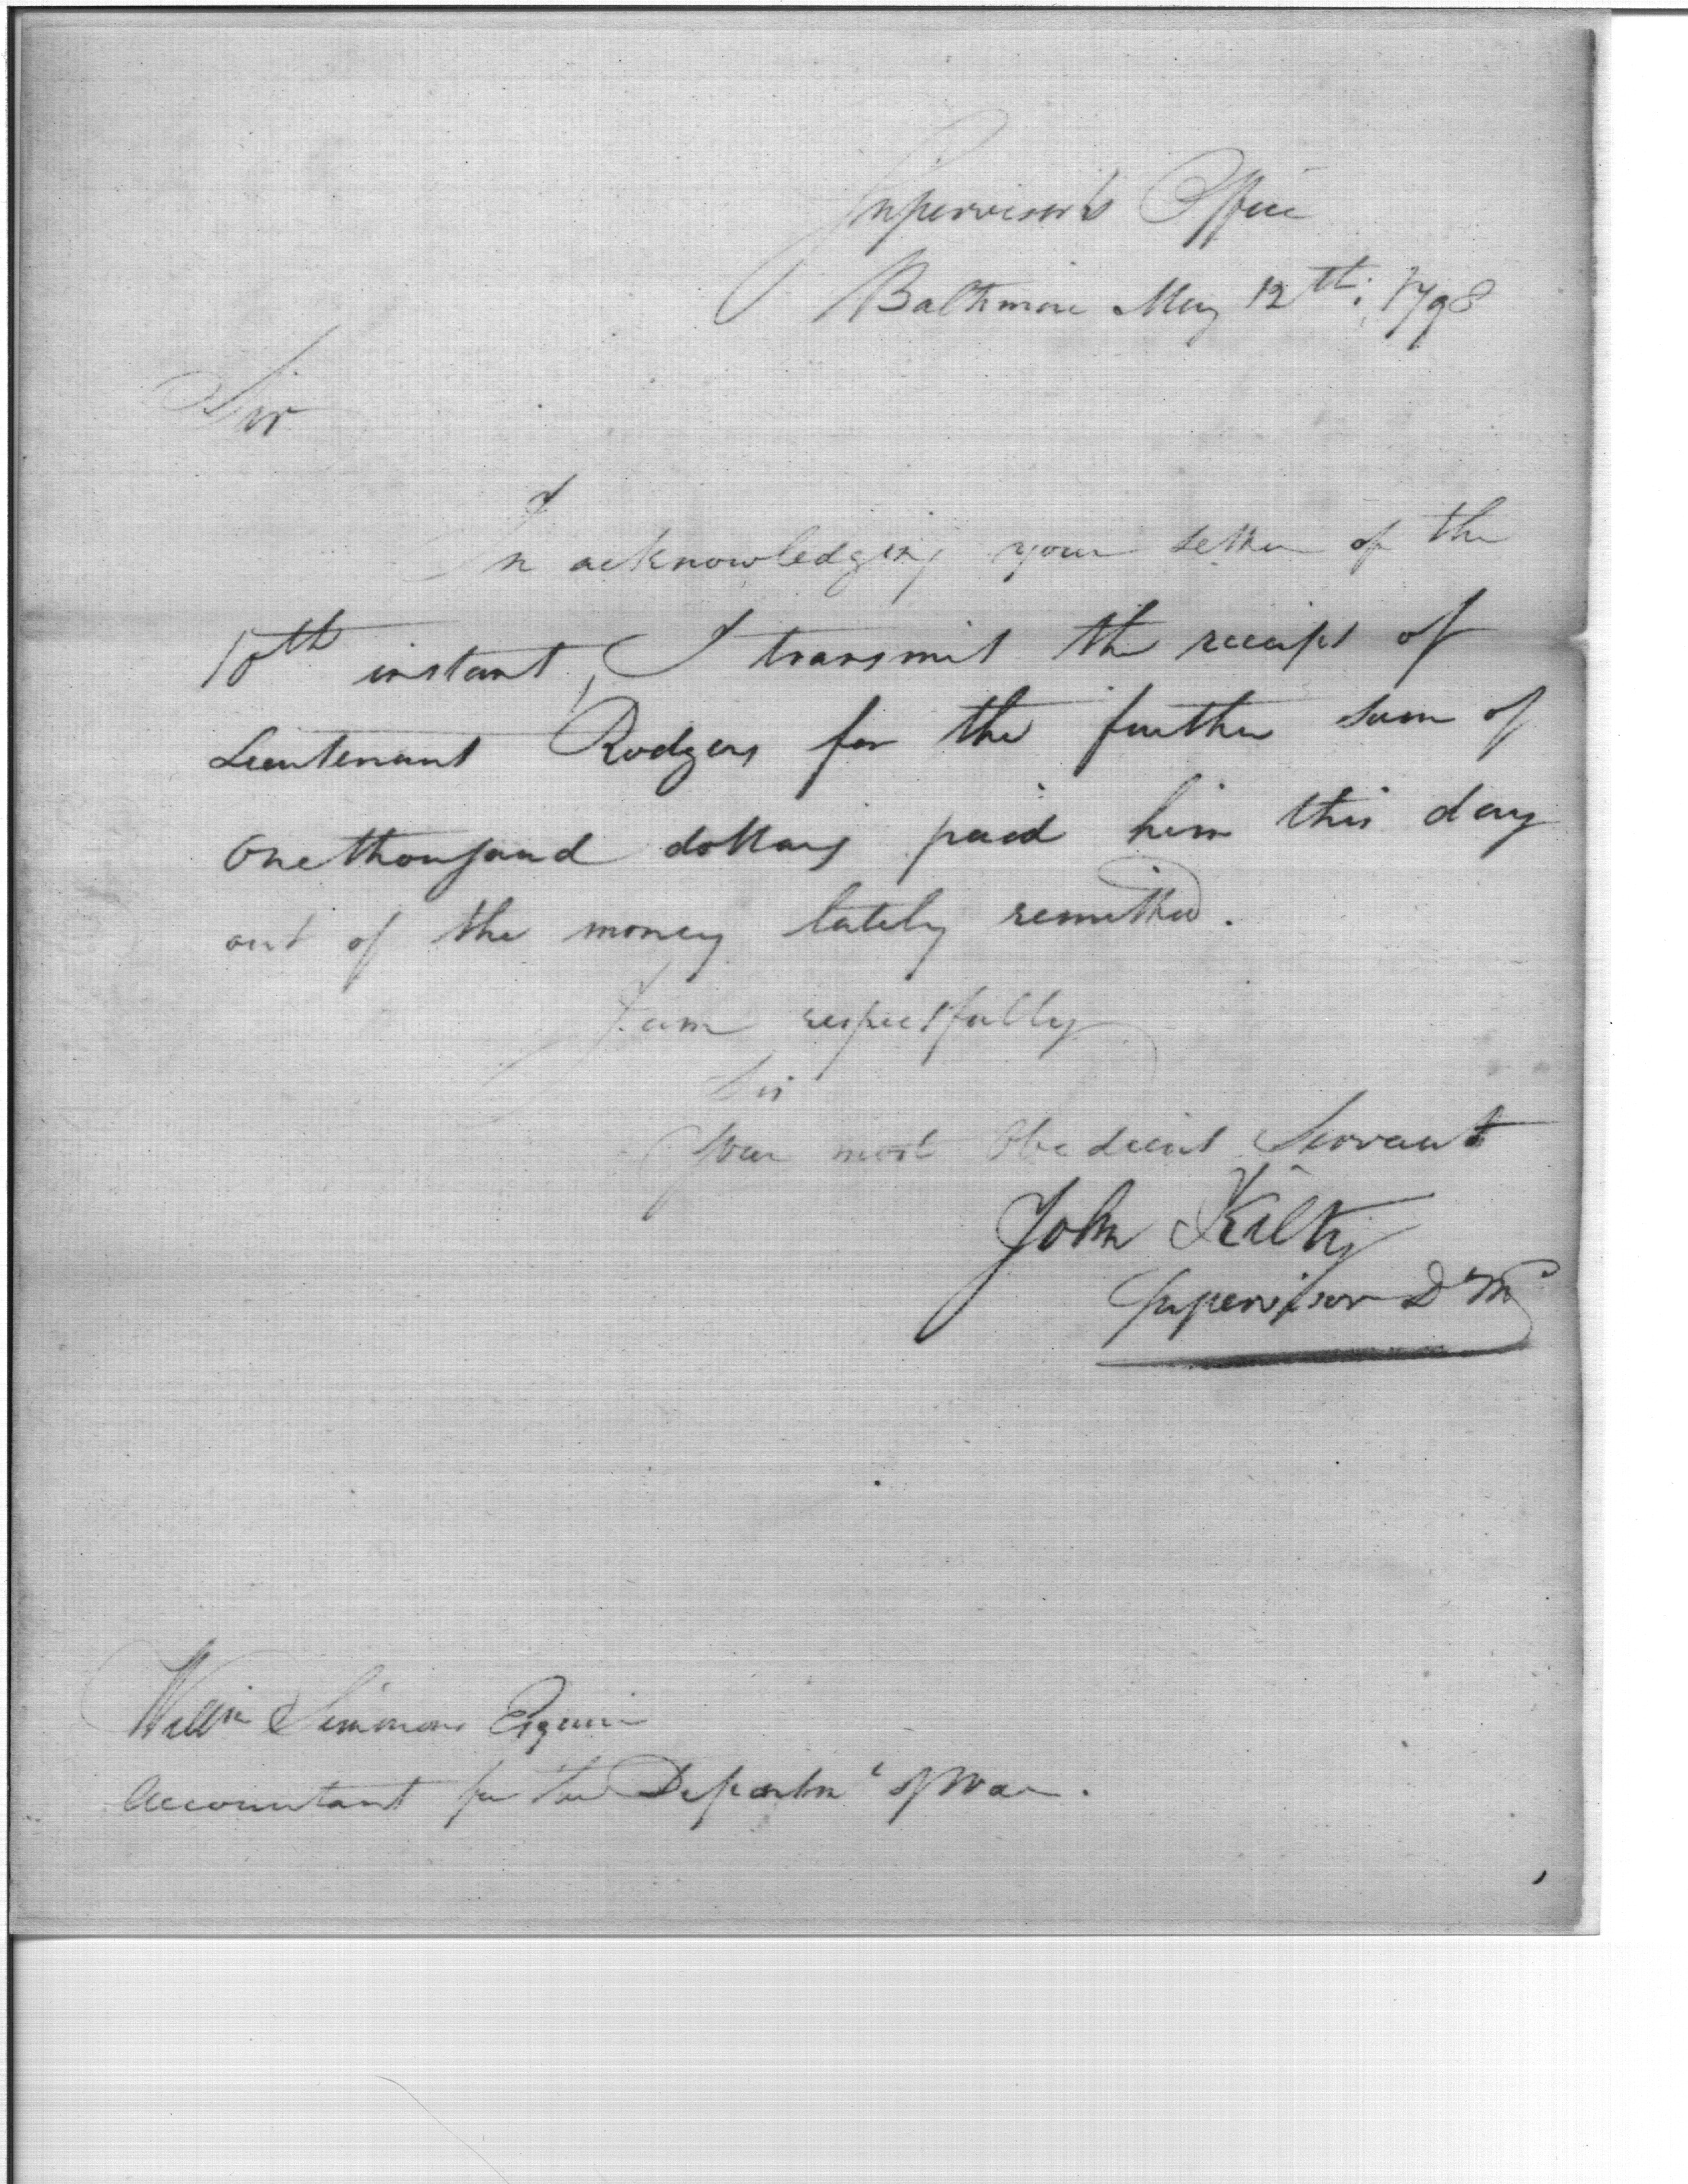 Supervisor's Office
Baltimore May 12th: 1798
Sir
In acknowledging your letter of the
10th instant, I transmit the receipt of
Lieutenant Rodgers for the further sum of
one thousand dollars paid him this day
out of the money lately remitted.
I am respectfully
Sir
Your most Obedient Servant
John Kilty
Supervisor D M
Willm Simmons Esquire
Accountant for the Departmt of War.